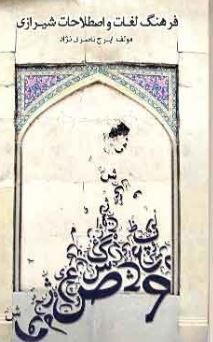 فرهنگ لغات و اصطلاحات شیرازی
مولف ایرج ناصری نژاد